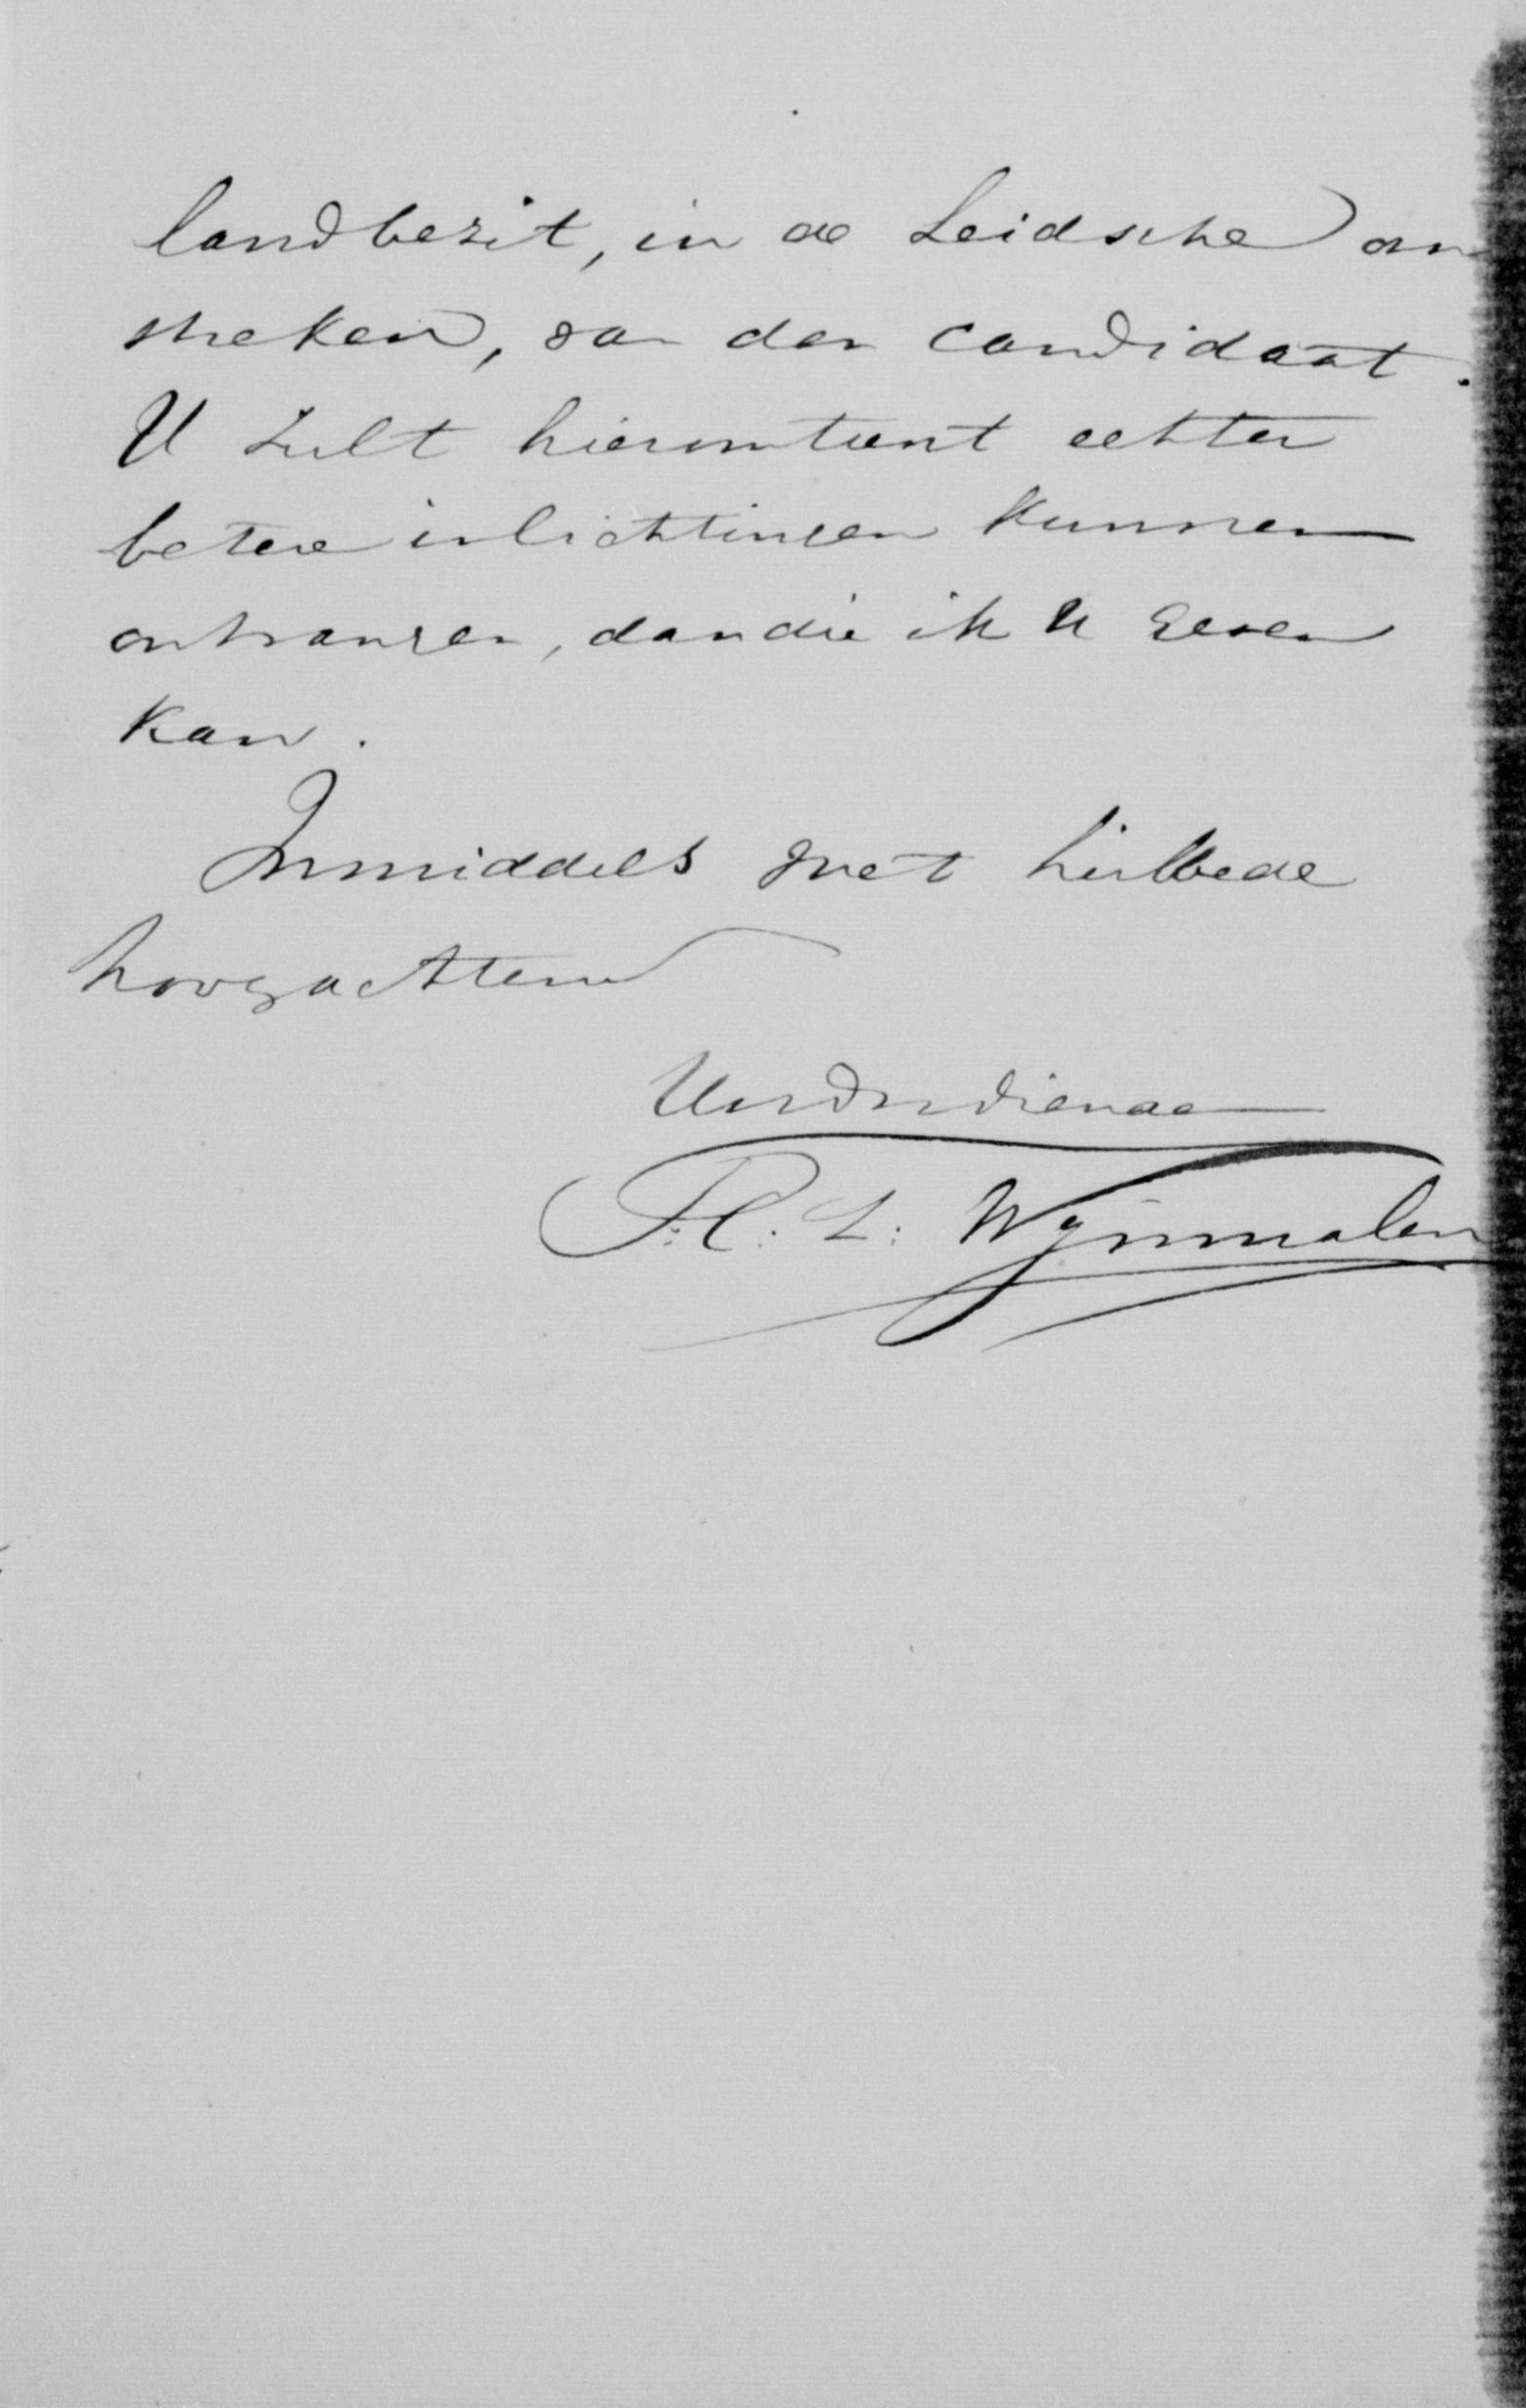 landbezit, in de Leidsche om
streken, van den candidaat.
U zult hieromtrent echter
betere inlichtingen kunnen
ontvangen, dan die ik U geven
kan.
Inmiddels met heilbede
hoogachtend
Uwdwdienaar
H. L. Wijnmalen